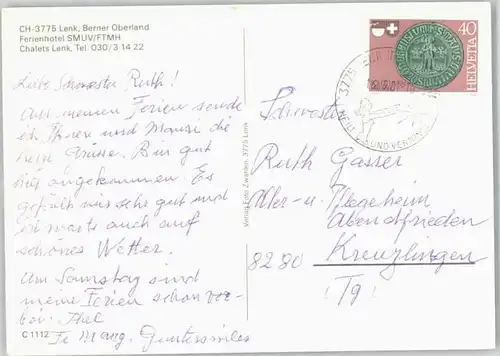 CH-3775 Lenk, Berner Oberland
Ferienhotel SMUV/FTMH
Chalets Lenk, Tel. 030/3 14 22
Liebe Schwester Ruth!
Aus meinen Ferien sende
ich Ihnen und Mausi die
Grüsse. Bin gut
hier angekommen. Es
gefällt mir sehr gut und
ist auch auf
schönes Wetter.
Am Samstag sind
meine Ferien schon vor-
bei.
C 1112
Verlag Foto Zwahlen, 3775 Lenk
40
HELVETIA
3775
Schwester
Ruth Gasser
Alter- u. Pflegeheim
Abendfrieden
8280 Kreuzlingen
(Tg)